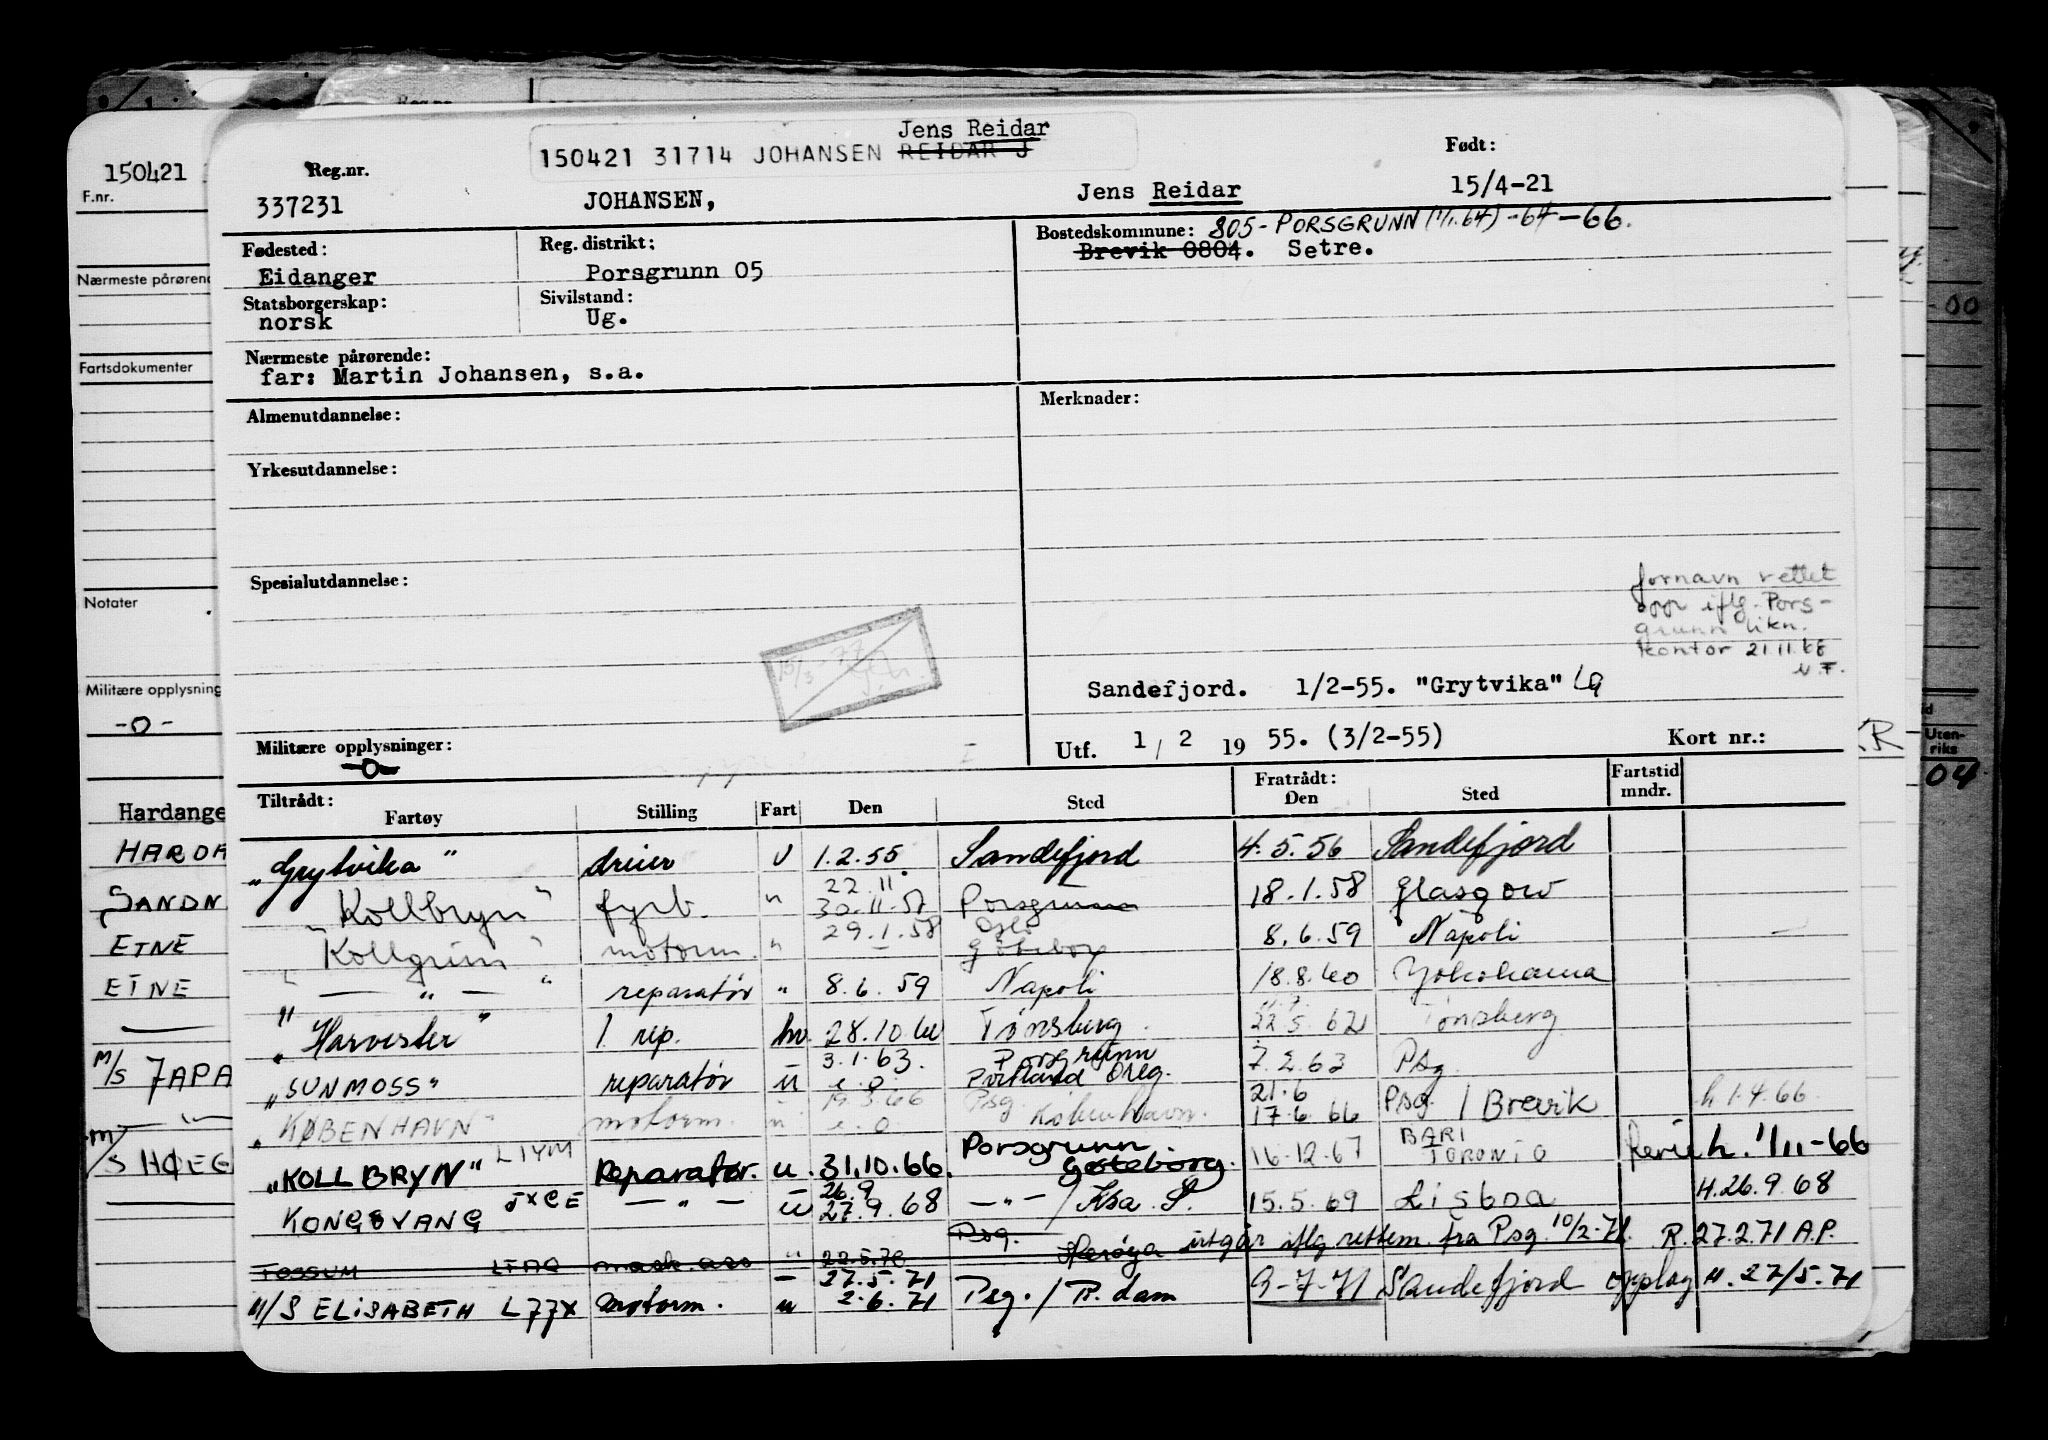 150421
F.nr.
Nærmeste pårørend
Fartsdokumenter
Notater
Militære opplysning
-0-
Hardange
HARDA
SANDN
ETNE
ETNE
M/S JAPA
M/S HØEG
Reg.nr.
337231
Jens Reidar
150421 31714 JOHANSEN REIDAR J
JOHANSEN,
Jens Reidar
Født:
15/4-21
Fødested:
Eidanger
Reg. distrikt:
Porsgrunn 05
Bostedskommune: 805- PORSGRUNN (1/1.64) -64-66.
Brevik 0804. Setre.
Statsborgerskap:
norsk
Sivilstand:
Ug.
Nærmeste pårørende:
far: Martin Johansen, s.a.
Almenutdannelse:
Merknader:
Yrkesutdannelse:
Spesialutdannelse:
15/3-77
fornavn rettet
opp iflg. Pors-
grunn likn.
kontor 21.11.68
Sandefjord. 1/2-55. "Grytvika"
Militære opplysninger:
-0-
Utf. 1/2 1955. (3/2-55)
Kort nr.:
Tiltrådt:
Fartøy Stilling Fart Den Sted
Fratrådt:
Den Sted
Fartstid
mndr.
Uten-
riks
04
-00
"Grytvika" dreier U 1.2.55 Sandefjord 4.5.56 Sandefjord
"Kollbryn" fyrb. " 22.11. 30.11.57 Porsgrunn 18.1.58 Glasgow
"Kollgrim" motorm. " 29.1.58 Oslo Göteborg 8.6.59 Napoli
" — " — " reparatør " 8.6.59 Napoli 18.8.60 Yokohama
"Harvester" 1 rep. hv. 28.10.60 Tønsberg 22.5.62 Tønsberg
"SUNMOSS" reparatør u 3.1.63. e.o. Porsgrunn Portland Oreg. 7.2.63 Psg.
"KØBENHAVN" motorm. u e.o. Psg. København. 21.6 17.6.66 Psg. / Brevik h 1.4.66
"KOLLBRYN" LIYM Reparatør. u. 31.10.66. Porsgrunn Göteborg. 16.12.67 BARI TORONTO ferie h. 1/11-66
KONGSVANG JXCE — " — u 26.9 27.9.68 — " — / Ksa. S. 15.5.69 Lisboa H.26.9.68
TOSSUM LFAQ mask.ass " 22.5.70 Psg. Herøya utgår iflg rettem. fra Psg. 10/2-71. R. 27.2.71 A.P.
M/S ELISABETH L77X Motorm. u 27.5.71 2.6.71 Psg. / R.dam 3-7-71 Sandefjord opplag H. 27/5.71